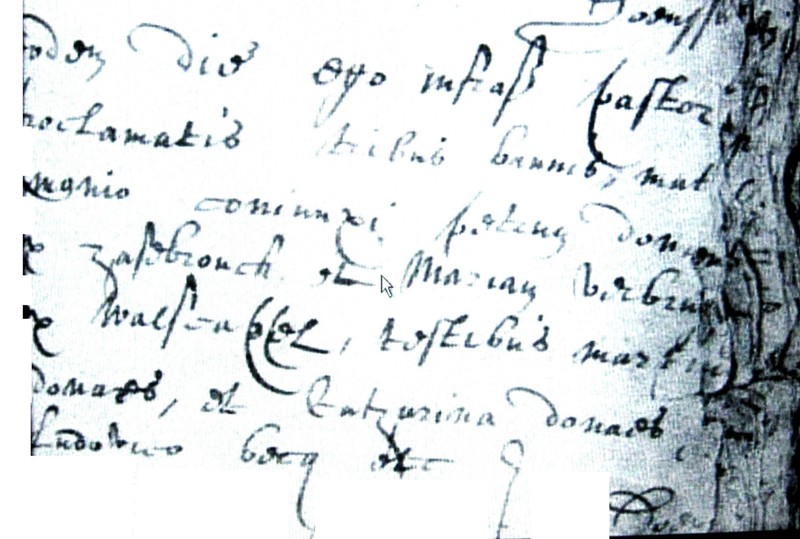 eodem die ego infraß pastor
proclamatis tribus bannis, mat
imonio coniunxi petrum
ex zasebrouch et Mariam Verbru
ex Walscappel, testibus mart
donaes, et Cathurina donaes
Ludovico becq etc